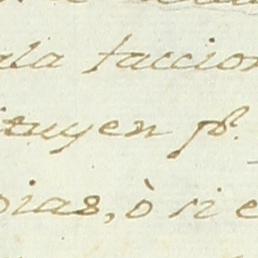 ala faccion
ituyen pr.
pias, ò si e